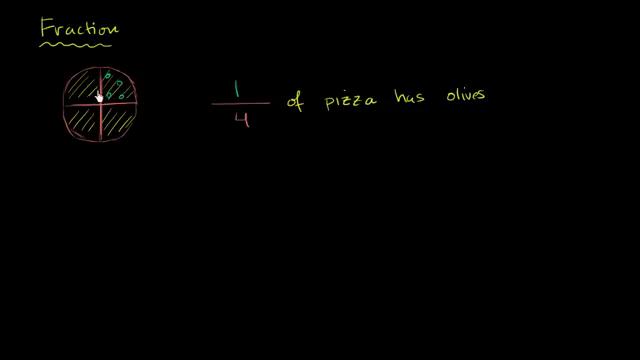 Fraction
1/4 of pizza has olives